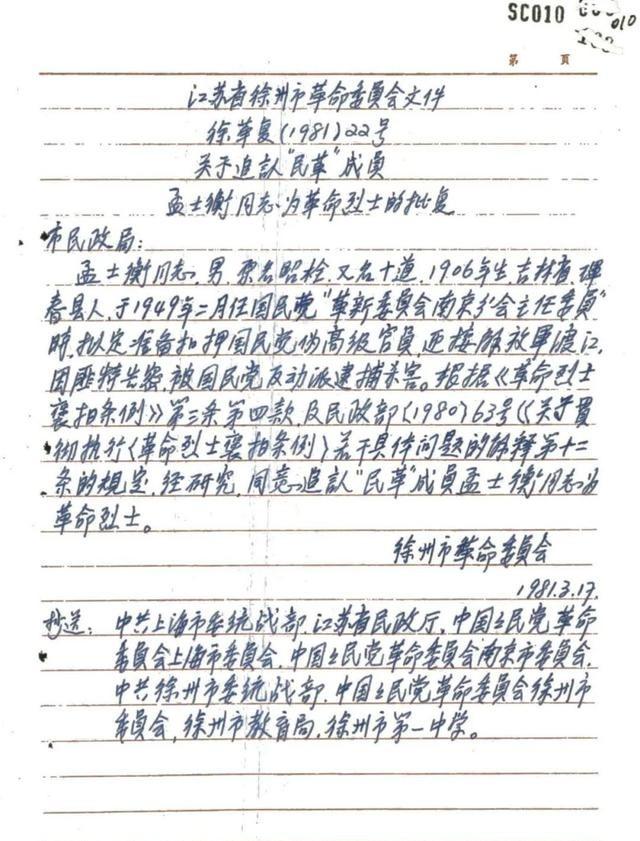 SC010
010
第 页
江苏省徐州市革命委员会文件
徐革复(1981)22号
关于追认"民革"成员
孟士衡同志为革命烈士的批复
市民政局：
孟士衡同志，男，原名昭栓，又名十道，1906年生，吉林省，珲
春县人，于1949年二月任国民党"革新委员会南京分会主任委员"
时，拟定准备扣押国民党伪高级官员，迎接解放军渡江，
因匪特告密，被国民党反动派逮捕杀害。根据《革命烈士
褒扬条例》第三条第四款，及民政部(1980)63号《〈关于贯
彻执行〈革命烈士褒扬条例〉若干具体问题的解释第十二
条的规定，经研究，同意追认"民革"成员孟士衡同志为
革命烈士。
徐州市革命委员会
1981.3.17.
抄送：中共上海市委统战部，江苏省民政厅，中国国民党革命
委员会上海市委员会，中国国民党革命委员会南京市委员会，
中共徐州市委统战部，中国国民党革命委员会徐州市
委员会，徐州市教育局，徐州市第一中学。